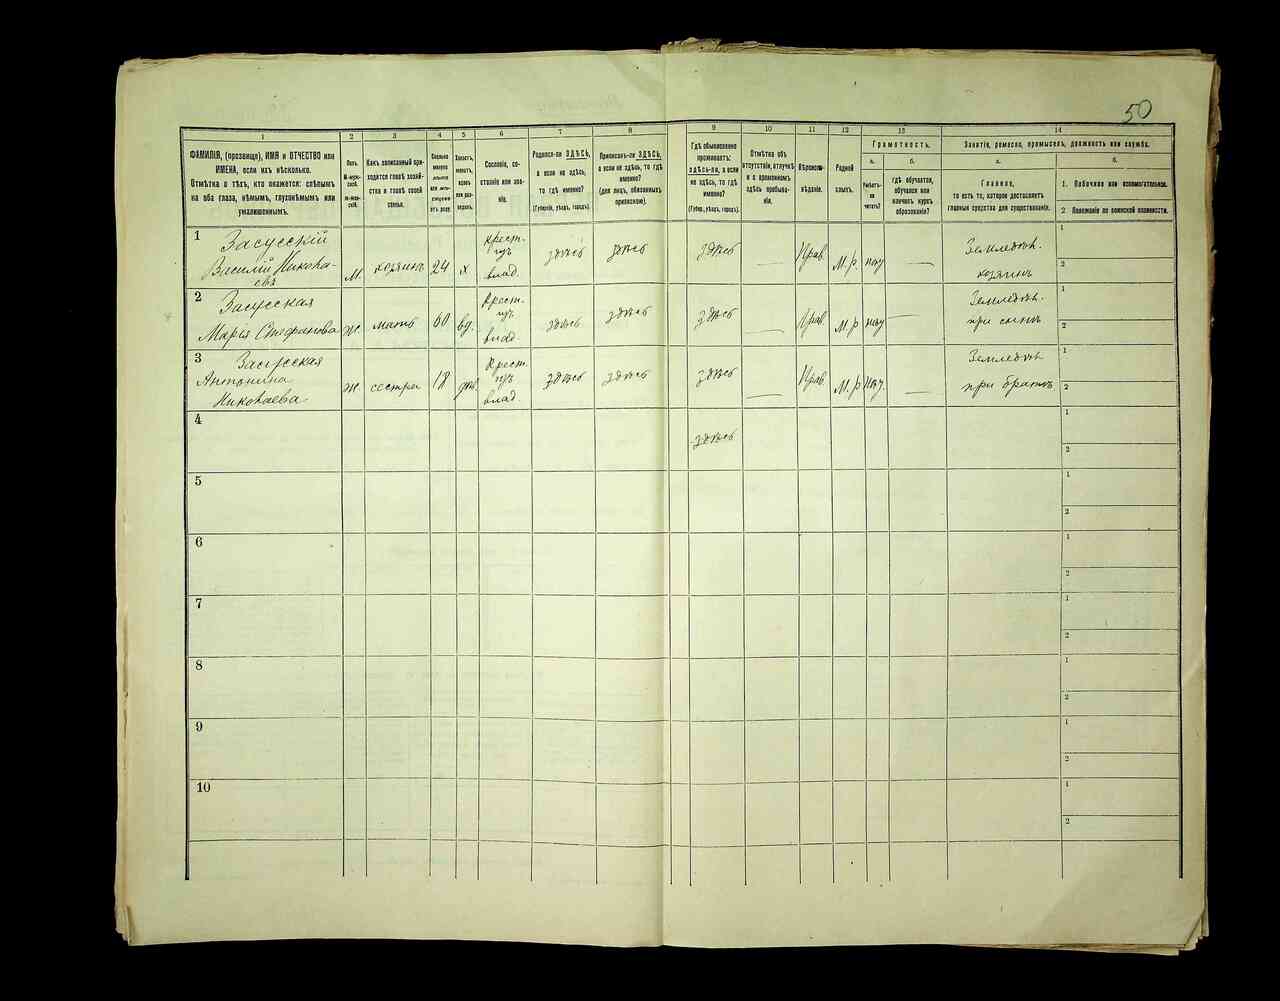 50
1 2 3 4 5 6 7 8 9 10 11 12 13 14
ФАМИЛІЯ, (прозвище), ИМЯ и ОТЧЕСТВО или
ИМЕНА, если ихъ нѣсколько.
Отмѣтка о тѣхъ, кто окажется: слѣпымъ
на оба глаза, нѣмымъ, глухонѣмымъ или
умалишеннымъ.
Полъ.
М-муж-
ской.
Ж-жен-
скій.
Какъ записанный при-
ходится главѣ хозяй-
ства и главѣ своей
семьи.
Сколько
минуло
лѣтъ
или мѣ-
сяцевъ
отъ роду.
Холостъ,
женатъ,
вдовъ
или раз-
веденъ.
Сословіе, со-
стояніе или зва-
ніе.
Родился-ли ЗДѢСЬ,
а если не здѣсь,
то гдѣ именно?
(Губернія, уѣздъ, городъ).
Приписанъ-ли ЗДѢСЬ,
а если не здѣсь, то гдѣ
именно?
(для лицъ, обязанныхъ
припискою).
Гдѣ обыкновенно
проживаетъ:
здѣсь-ли, а если
не здѣсь, то гдѣ
именно?
(Губер., уѣздъ, городъ).
Отмѣтка объ
отсутствіи, отлучкѣ
и о временномъ
здѣсь пребыва-
ніи.
Вѣроиспо-
вѣданіе.
Родной
языкъ.
Грамотность.
а. б.
Умѣетъ-
ли
читать?
гдѣ обучается,
обучался или
кончилъ курсъ
образованія?
Занятіе, ремесло, промыселъ, должность или служба.
а. б.
Главное,
то есть то, которое доставляетъ
главныя средства для существованія.
1. Побочное или вспомогательное.
2 Положеніе по воинской повинности.
1 Засусскій
Василій Николае-
евъ
М. хозяинъ 24 х
крест.
изъ
влад.
здѣсь здѣсь здѣсь — Прав. М. р. нѣу —
Земледѣл.
хозяинъ
1
2
2 Засусская
Марія Стефанова
ж. мать 60 вд.
крест.
изъ
влад.
здѣсь здѣсь здѣсь — Прав. М. р нѣу —
Земледѣл.
при сынѣ
1
2
3 Засусская
Антонина
Николаева
ж. сестра 18 дѣв.
крест.
изъ
влад.
здѣсь здѣсь здѣсь — Прав. М. р нѣу. —
Земледѣл.
при братѣ
1
2
4 здѣсь
1
2
5
1
2
6
1
2
7
1
2
8
1
2
9
1
2
10
1
2